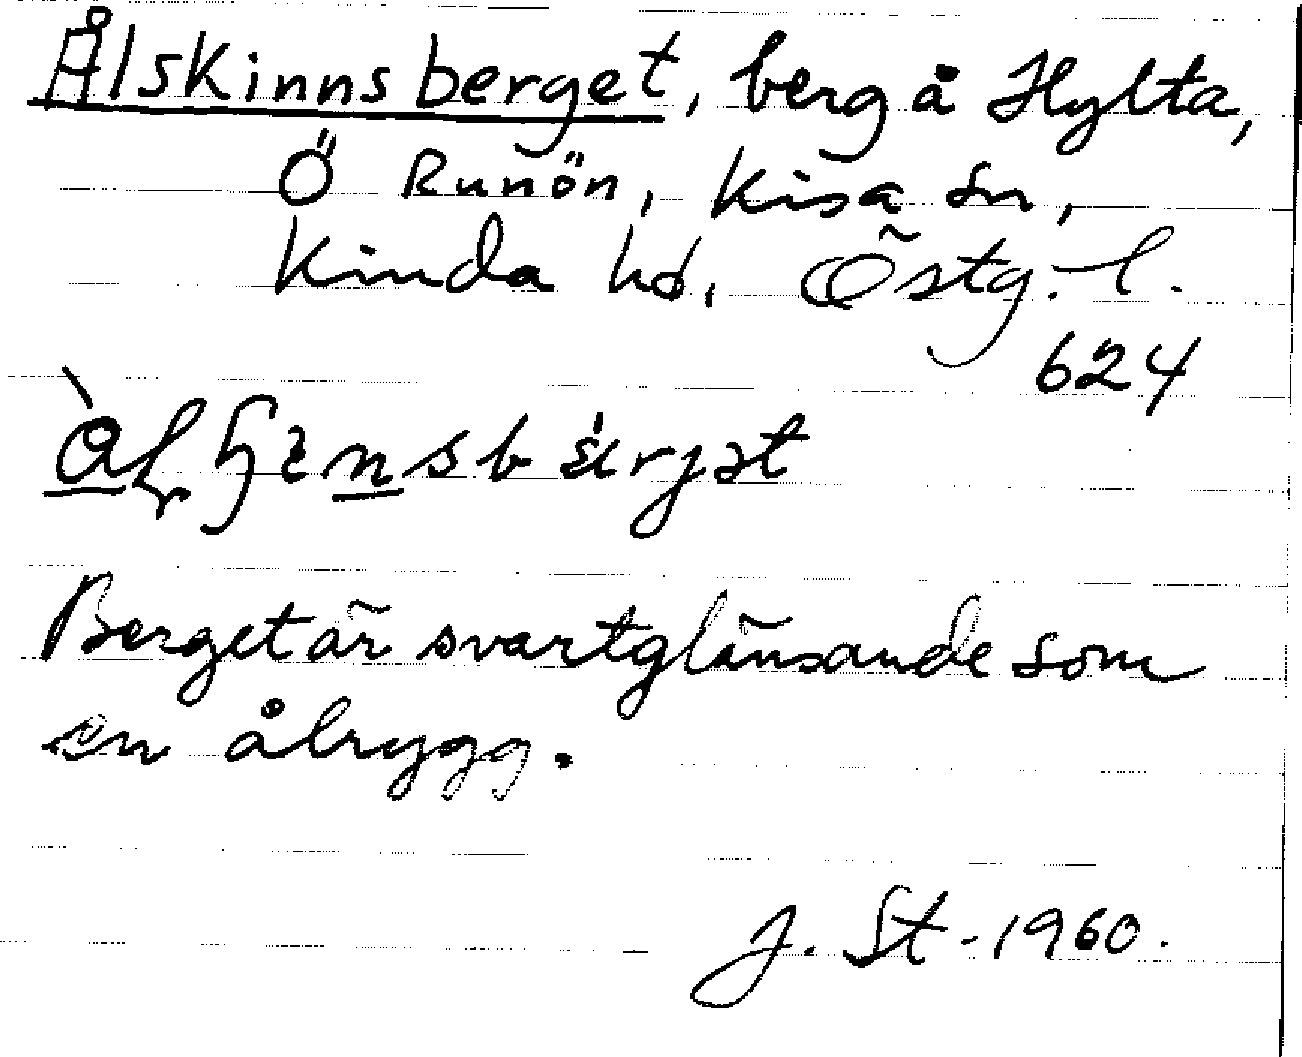 Ålskinnsberget, berg å Hylta,
Ö Runön, Kisa sn,
Kinda hd, Östg. l.
624
Berget är svartglänsande som
en ålrygg.
J. St. 1960.